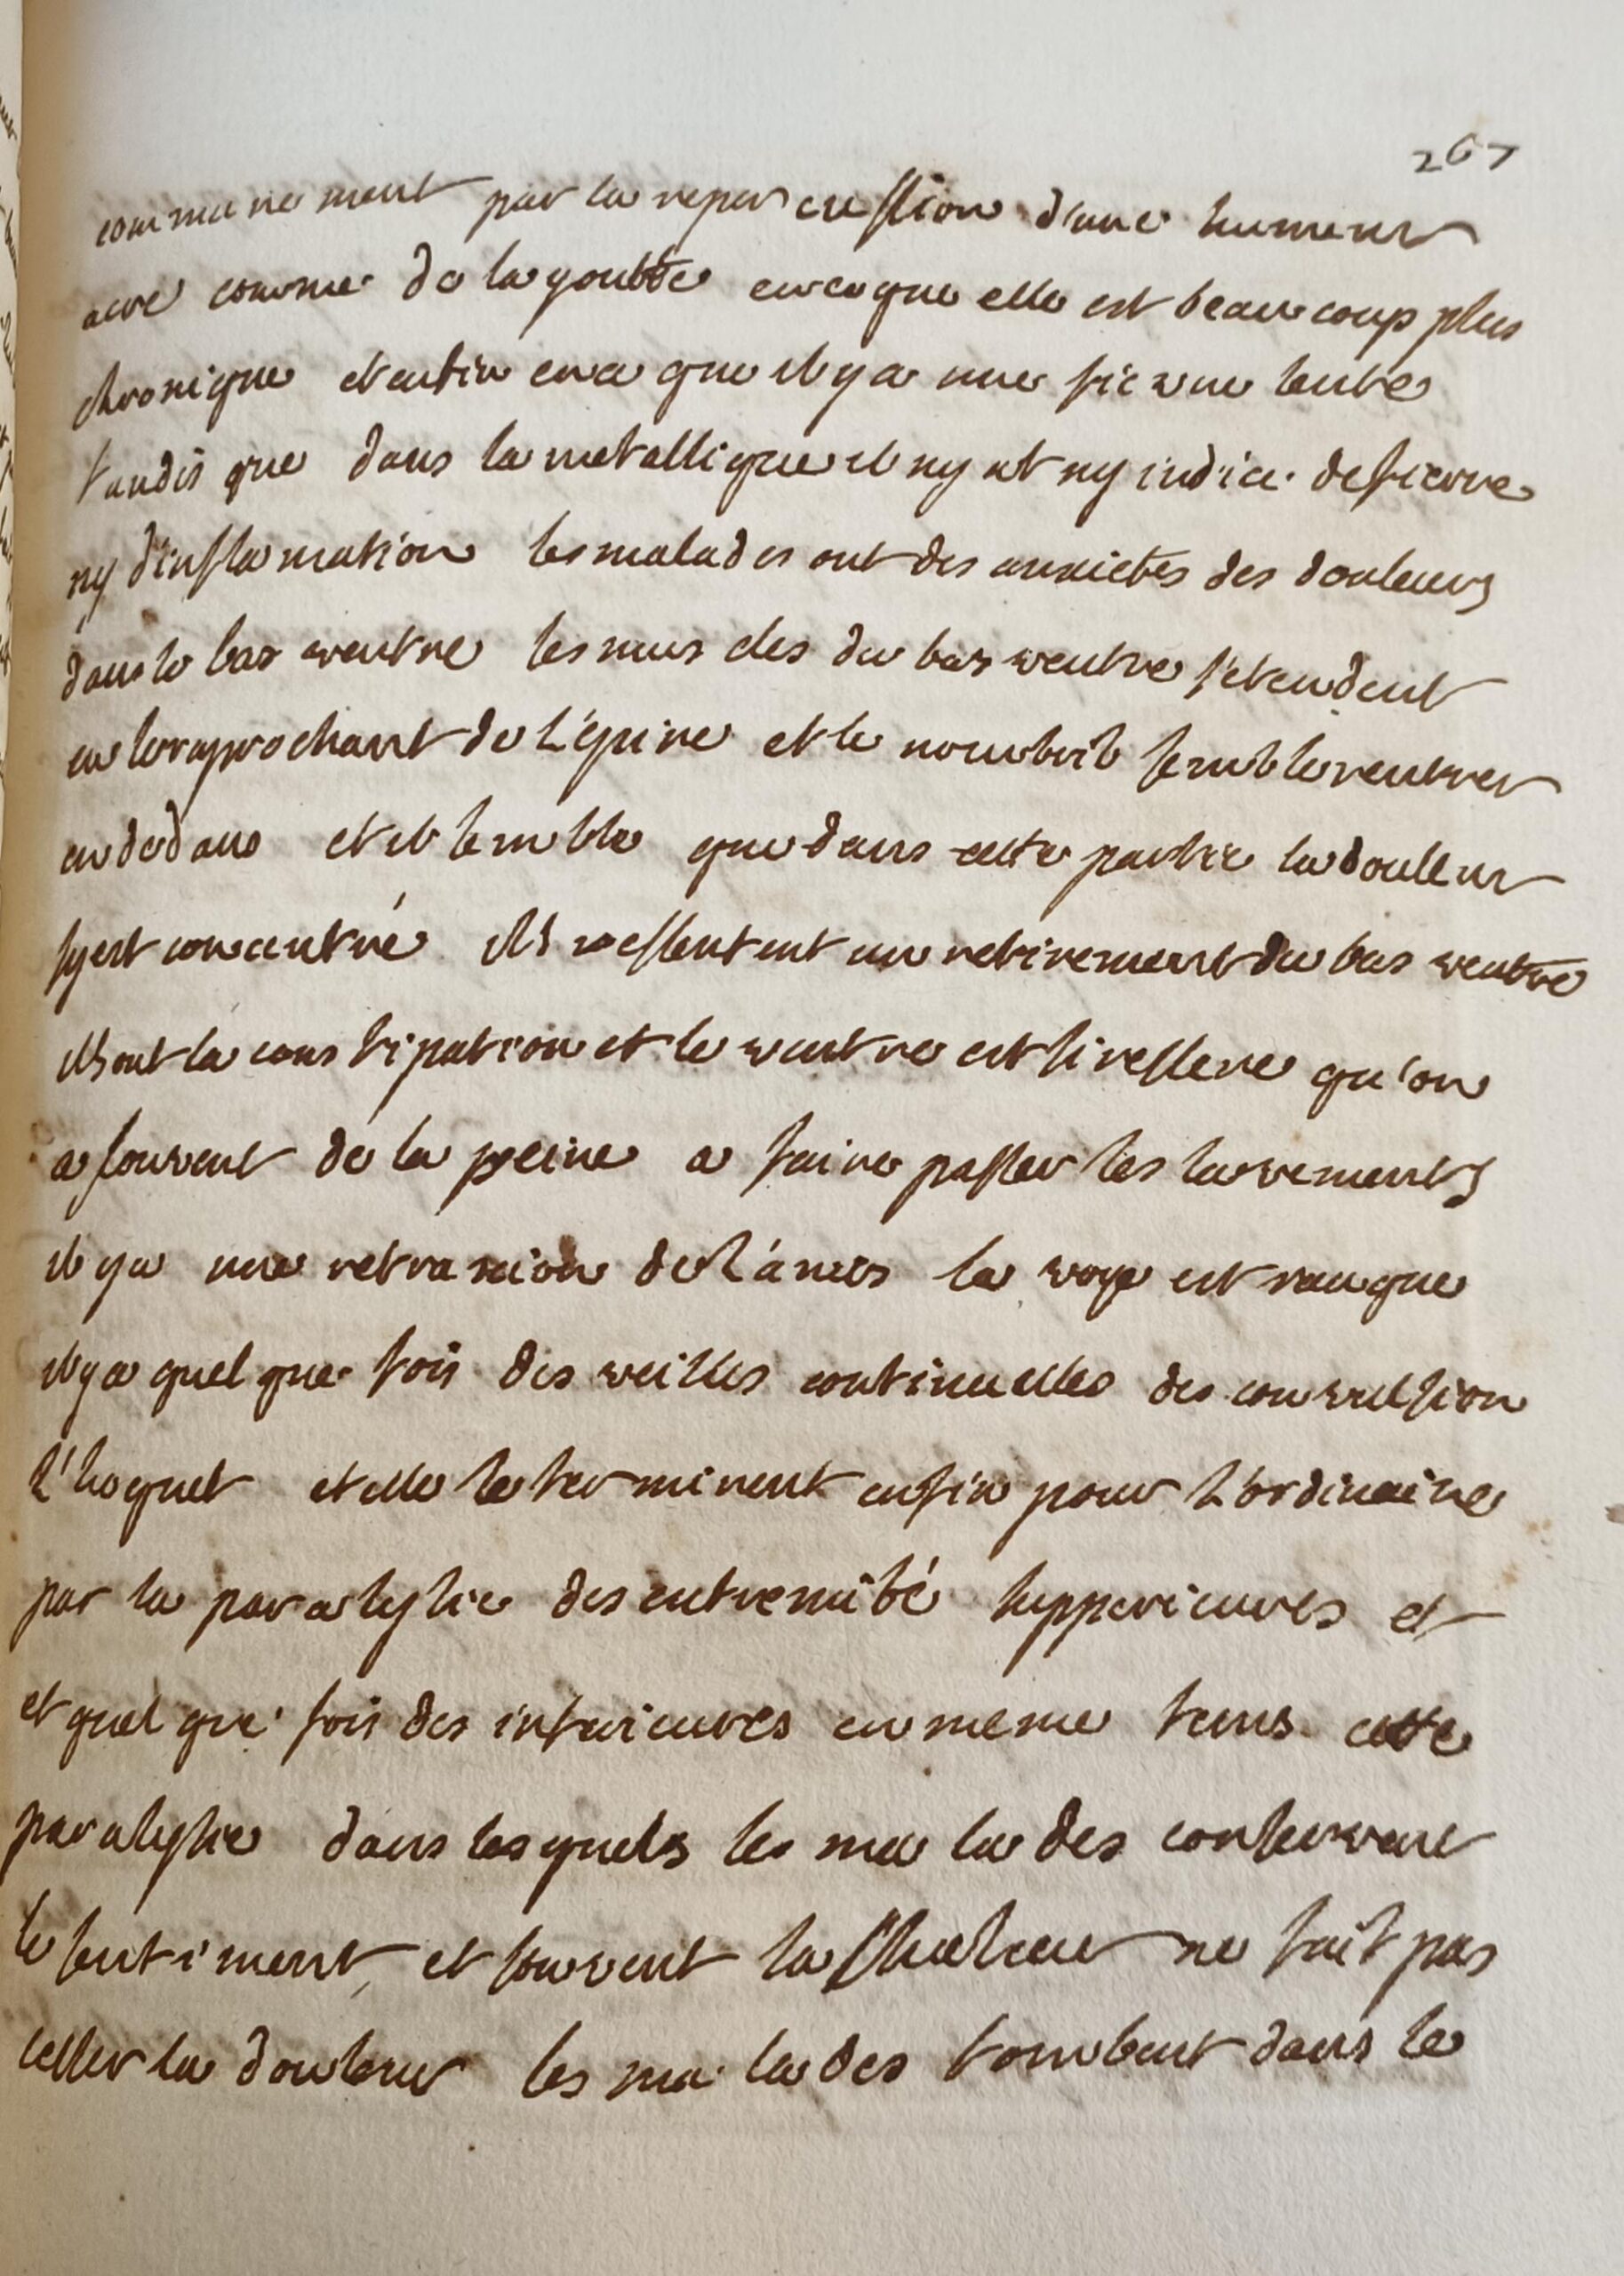 267
communement par la repercussion d'une humeur
acre comme de la goutte en ce que elle est beaucoup plus
chronique et enfin en ce que il y a une fievre lente
tandis que dans la metallique il ny at ny indice de fievre
ny d'inflamation les malades ont des anxietés des douleurs
dans le bas ventre les muscles du bas ventre s'etendent
en se raprochant de l'épine et le nombril semble rentrer
en dedans et il semble que dans cette partie la douleur
s'y est concentré ils ressentent un retirement du bas ventre
ils ont la constipation et le ventre est si resseré qu'on
a souvent de la peine a faire passer les lavements
il y a une retraxion de l'anus la voye est rauque
il y a quelque fois des veilles continuelles des convulsion
l'hoquet et elle se terminent enfin pour l'ordinaire
par la paralysie des extremité supperieures et
et quelque fois des inferieures en meme tems cette
paralysie dans lesquels les malades conservent
le sentiment, et souvent la ne fait pas
cesser la douleur les malades tombent dans le